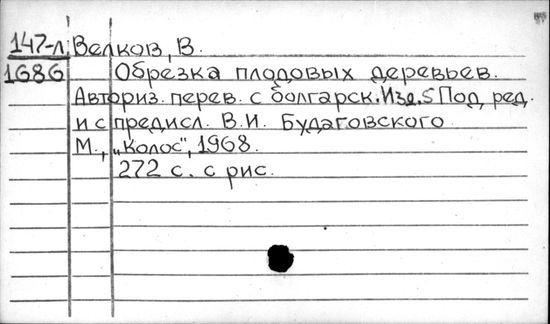 147-л Велков, В.
1686 Обрезка плодовых деревьев.
Авториз. перев. с болгарск. Изд. 5 Под ред.
и с предисл. В.И. Будаговского
М., „Колос", 1968.
272 с. с рис.